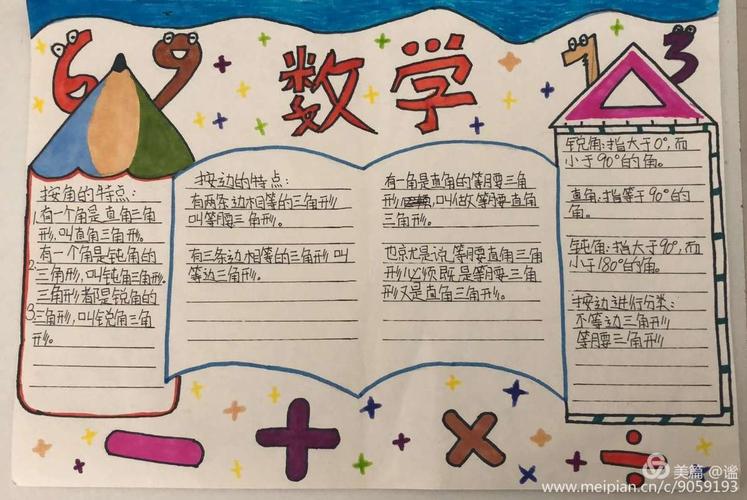 69
数学
7 3
按角的特点:
1.有一个角是直角三角
形,叫直角三角形。
2.有一个角是钝角的
三角形,叫钝角三角形。
3.三角形都是锐角的
三角形,叫锐角三角
形。
按边的特点:
有两条边相等的三角形
叫等腰三角形。
有三条边相等的三角形叫
等边三角形。
有一角是直角的等腰三角
形,叫做等腰直角
三角形。
也就是说,等腰直角三角
形必须既是等腰三角
形又是直角三角形。
锐角:指大于0°,而
小于90°的角。
直角:指等于90°的
角。
钝角:指大于90°,而
小于180°的角。
按边进行分类:
不等边三角形
等腰三角形
美篇 @谧
www.meipian.cn/c/9059193